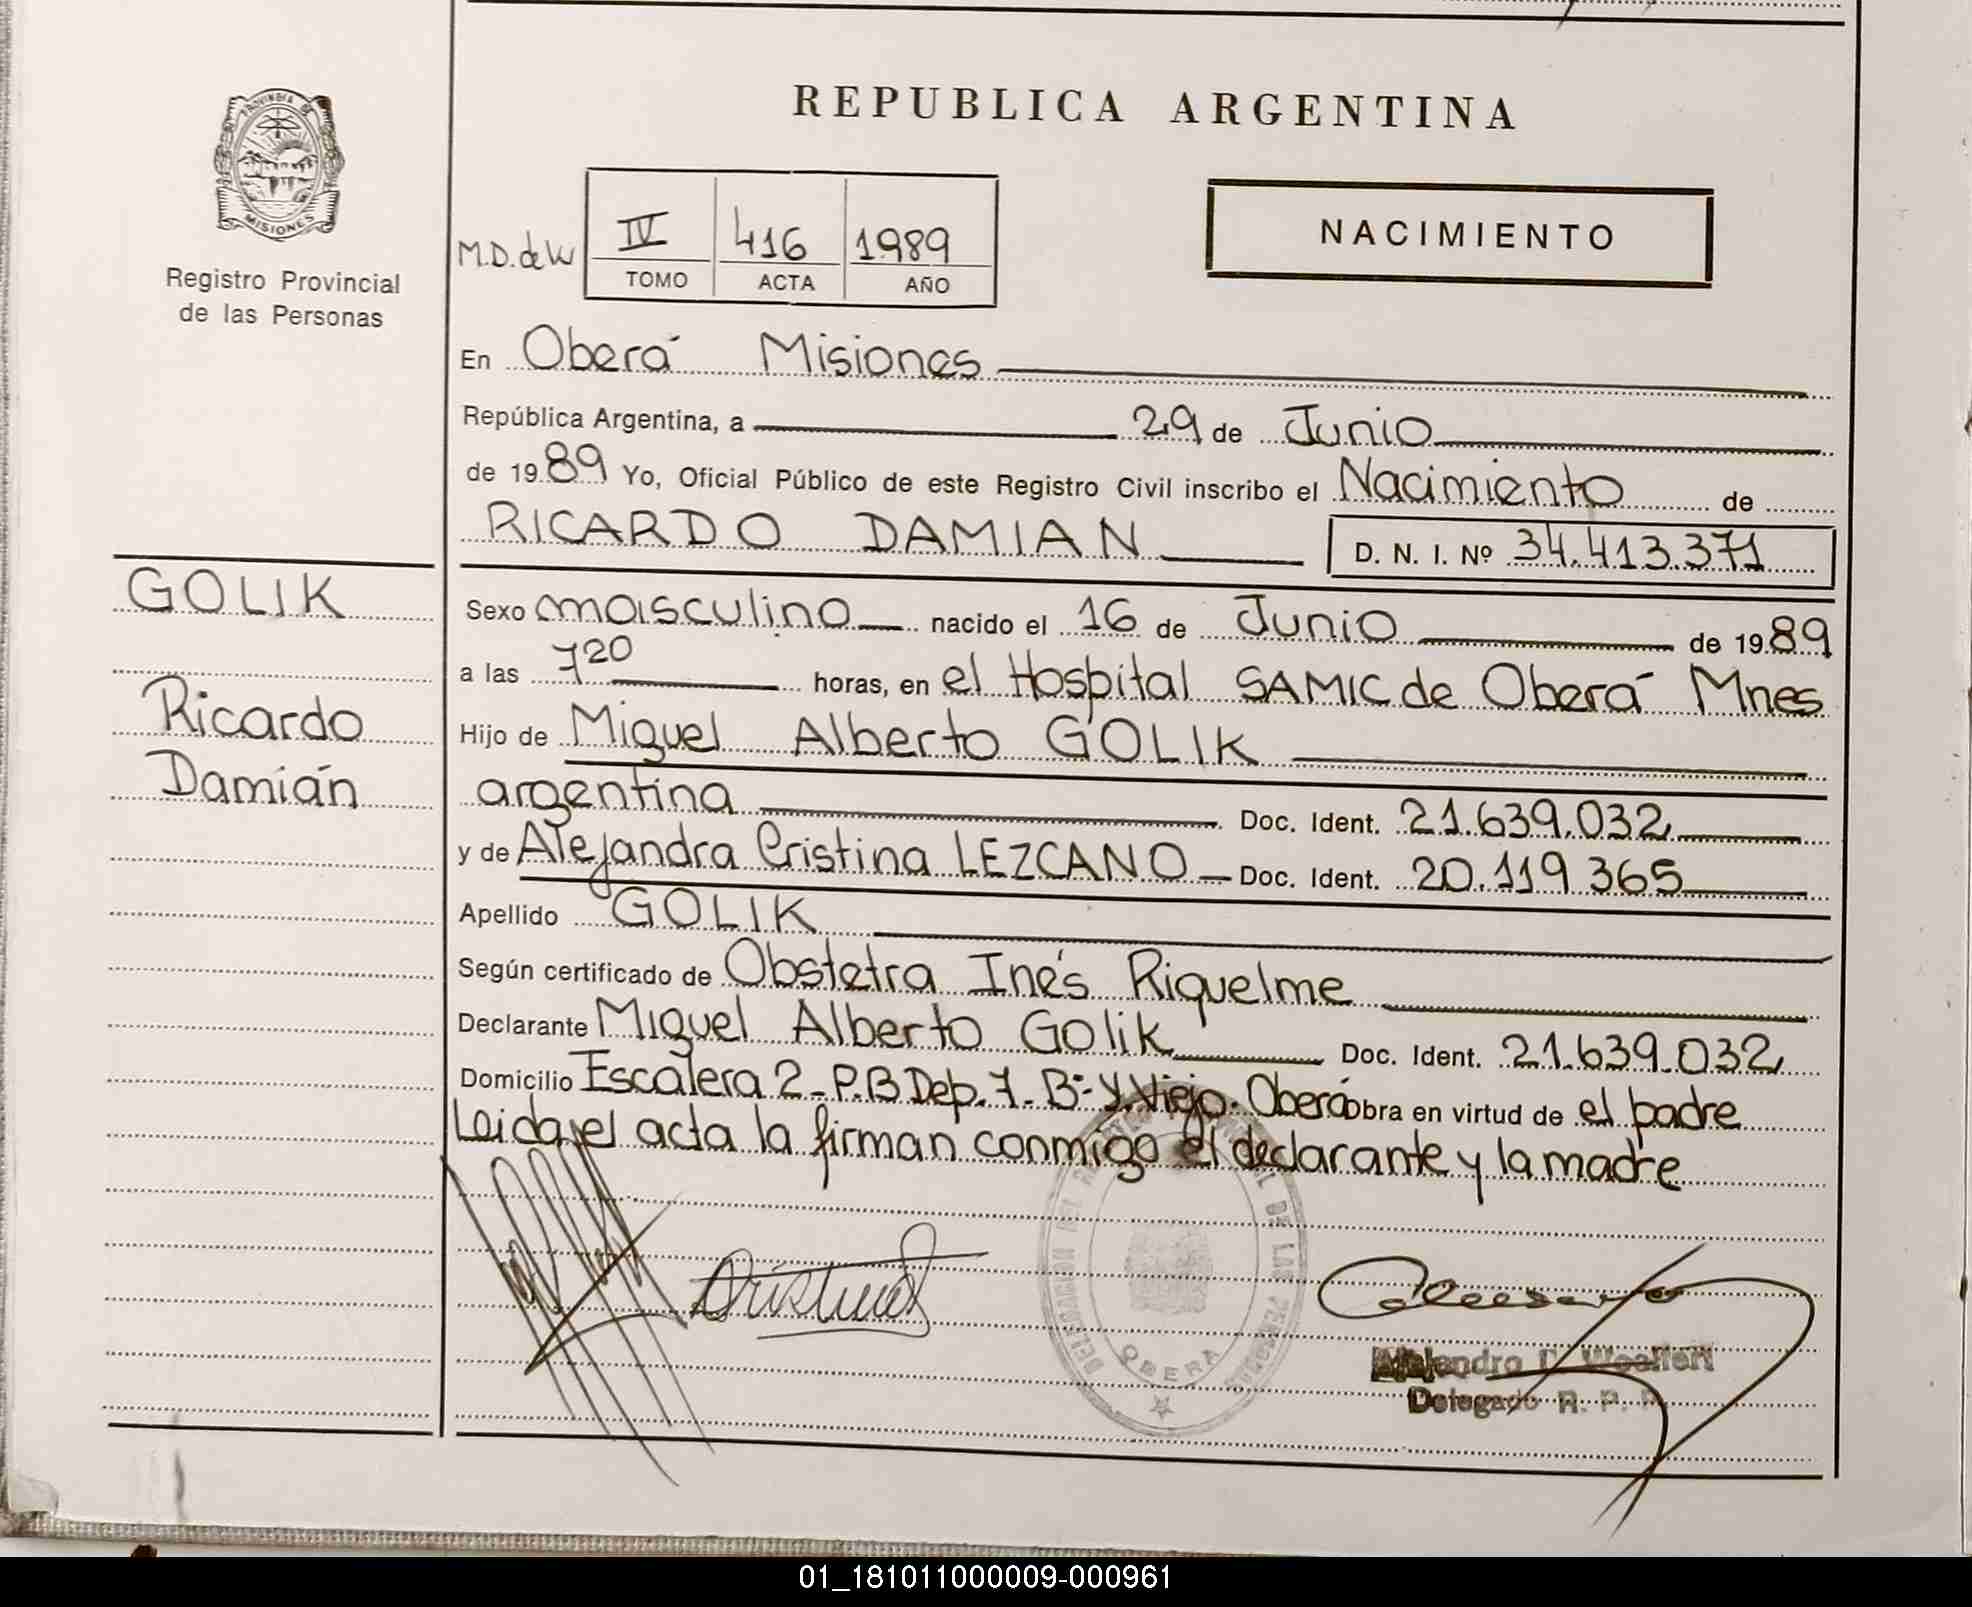 REPUBLICA ARGENTINA
PROVINCIA DE MISIONES
Registro Provincial
de las Personas
M.D. de W
IV 416 1989
TOMO ACTA AÑO
NACIMIENTO
En Oberá Misiones
República Argentina, a 29 de Junio
de 1989 Yo, Oficial Público de este Registro Civil inscribo el Nacimiento de
RICARDO DAMIAN D. N. I. Nº 34.413.371
GOLIK
Ricardo
Damián
Sexo masculino nacido el 16 de Junio de 1989
a las 7 20 horas, en el Hospital SAMIC de Oberá Mnes
Hijo de Miguel Alberto GOLIK
argentina Doc. Ident. 21.639.032
y de Alejandra Cristina LEZCANO Doc. Ident. 20.119.365
Apellido GOLIK
Según certificado de Obstetra Inés Riquelme
Declarante Miguel Alberto Golik Doc. Ident. 21.639.032
Domicilio Escalera 2 - P.B Dep. 7 - Bº Y. Viejo. Oberá obra en virtud de el padre
Leida el acta la firman conmigo el declarante y la madre
DE LAS PERSONAS
OBERA
Delegado R. P.
01_181011000009-000961